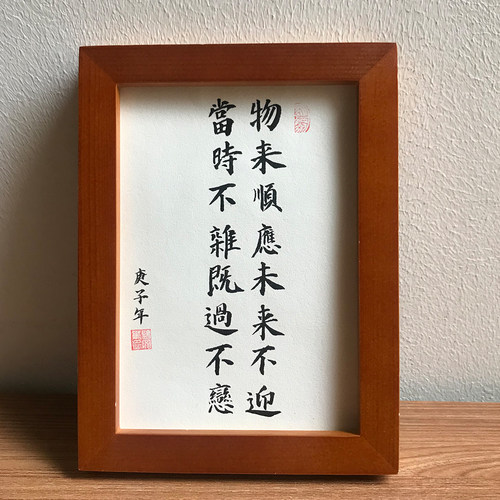 物来順應未来不迎
當時不雜既過不戀
庚子年